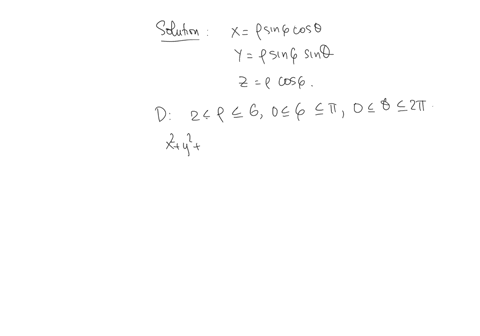 Solution: X = ρ sin φ cos θ
Y = ρ sin φ sin θ
Z = ρ cos φ.
D: 2 ≤ ρ ≤ 6, 0 ≤ φ ≤ π, 0 ≤ θ ≤ 2π.
x² + y² +